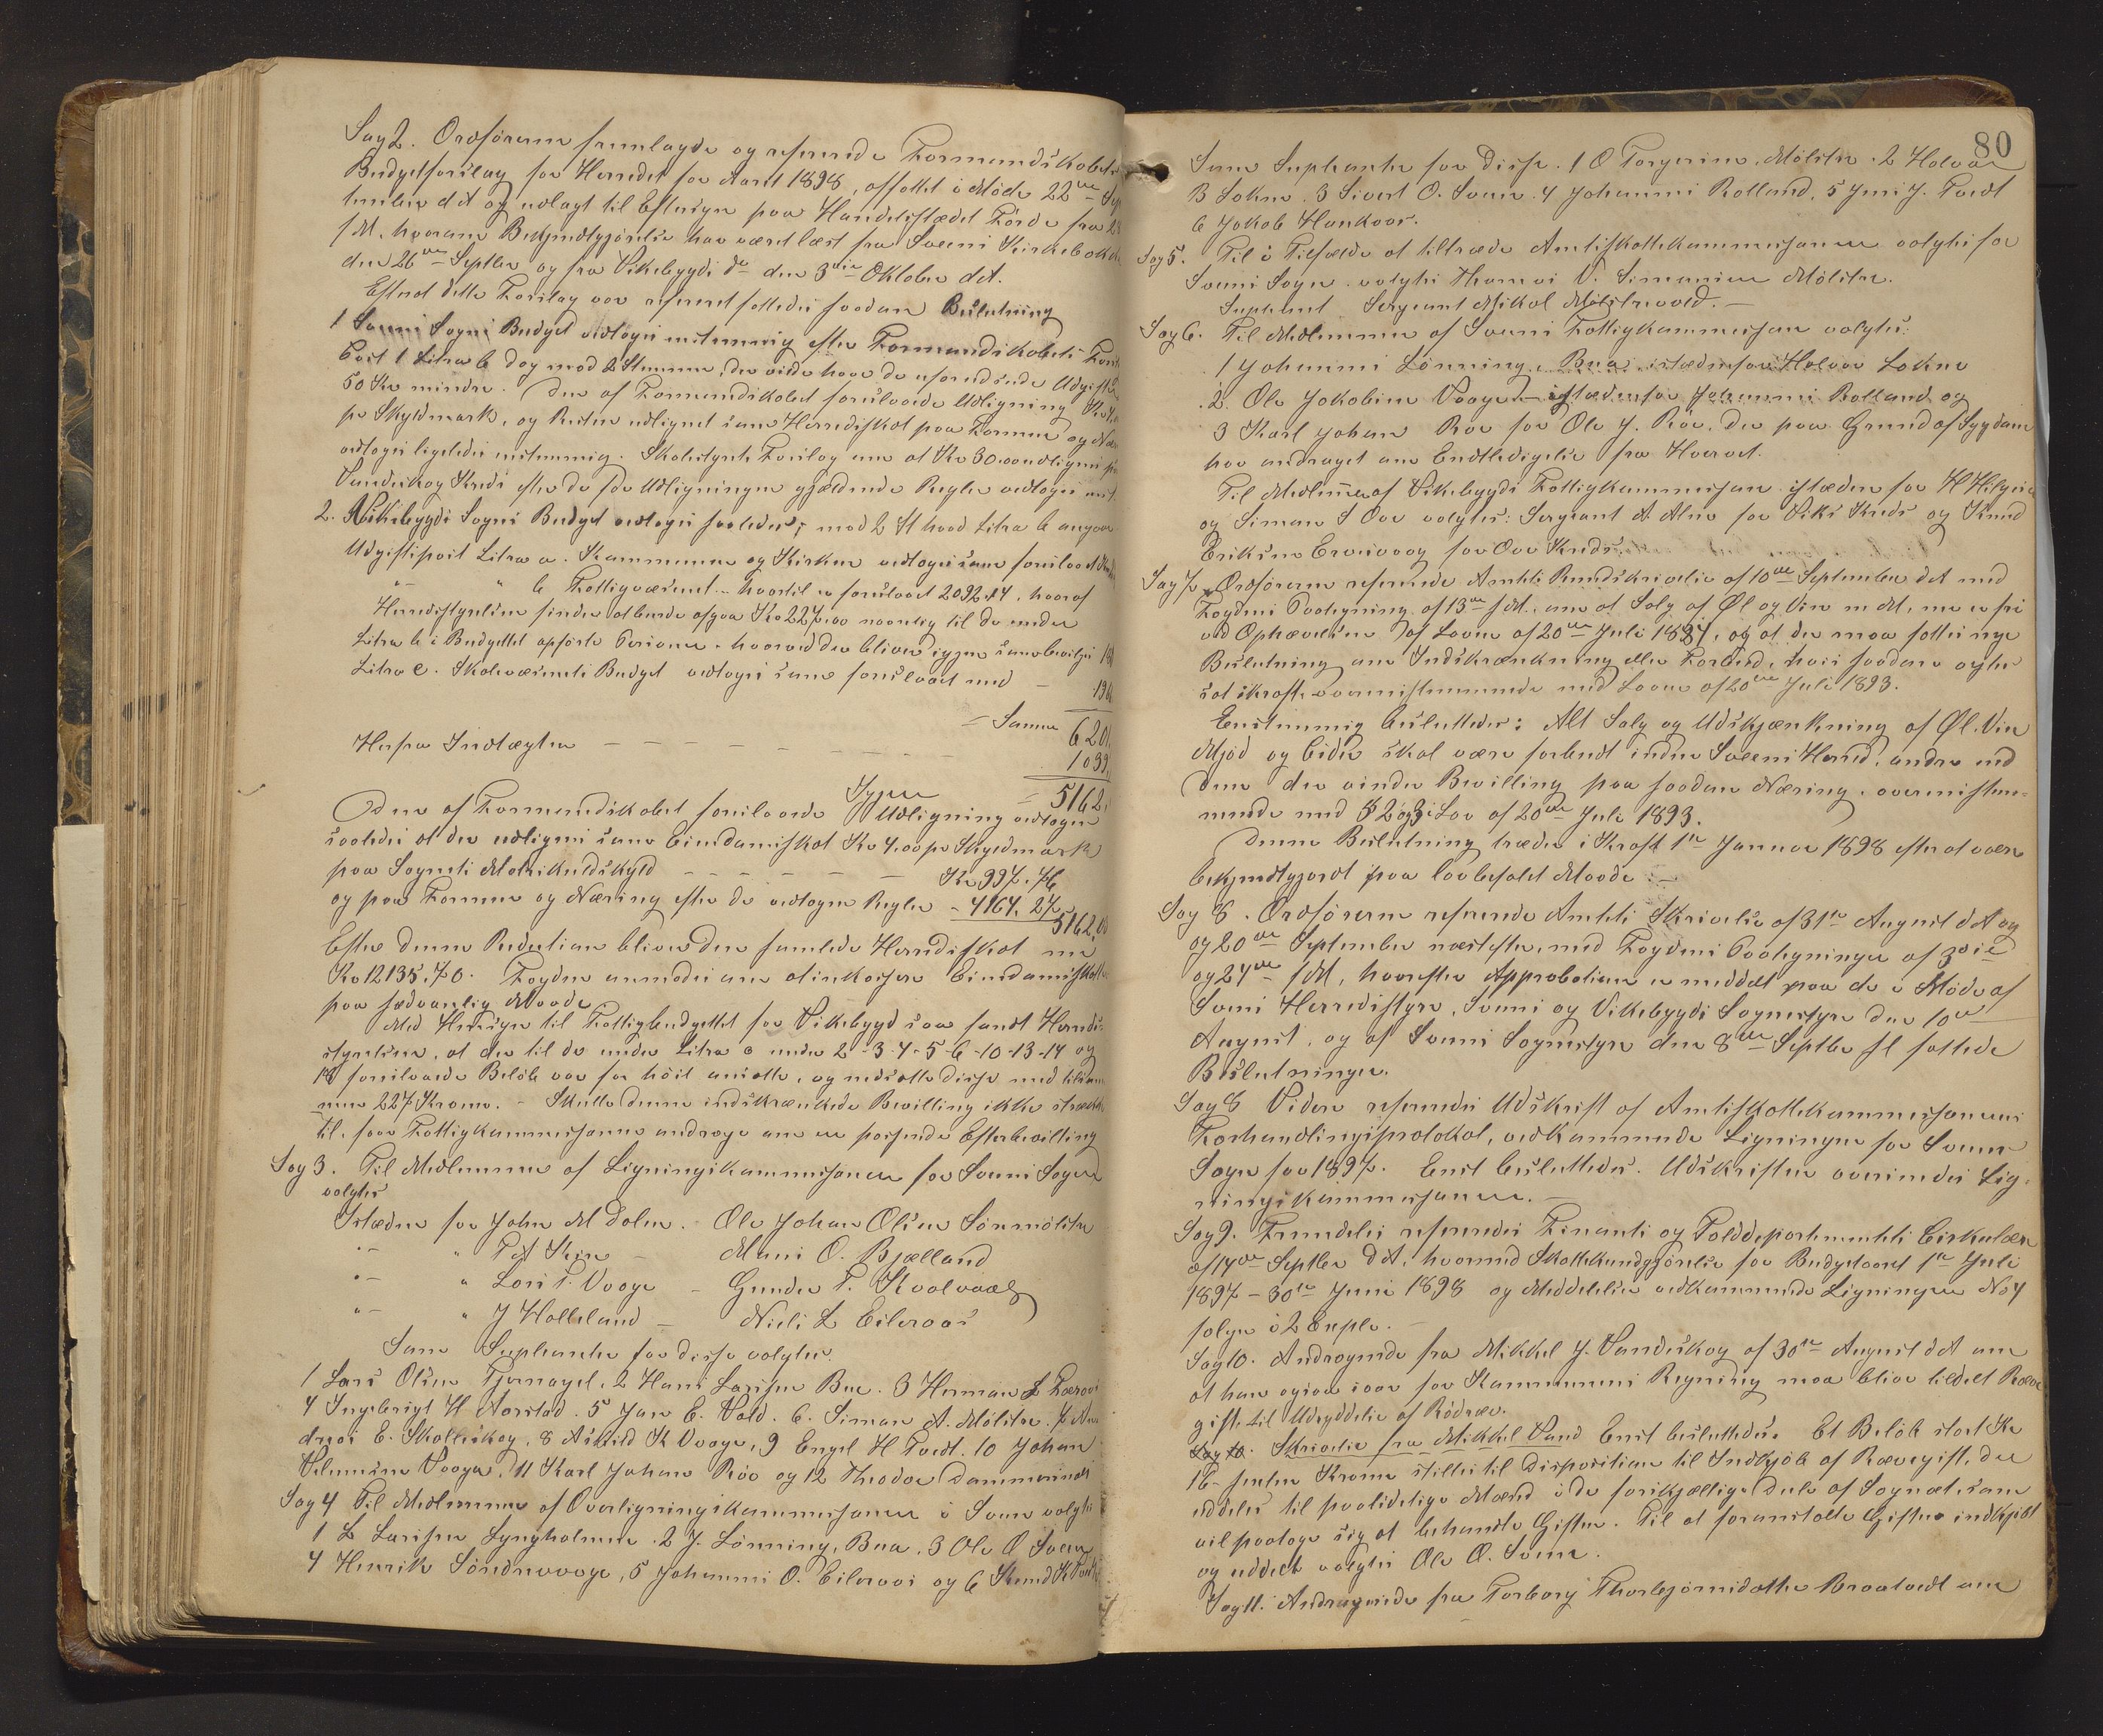 Sag 2. Ordføreren fremlagde og refererede Formandskabets
Budgetforslag for Herredet for Aaret 1898, affattet i Møde 22de Sep
tember d.A. og udlagt til Eftersyn paa Handelsstedet Førde fra 23
s.M. hvorom Bekjendtgjørelse har været læst fra Sveens Kirkebakke
den 26de Septbr og fra Vikebygds do den 3die Oktober d.A.
Efterat dette Forslag var refereret fattedes saadan Beslutning
1 Sveens Sogns Budget vedtoges enstemmig efter Formandskabets Forsl
Post 1 Litra b dog mod 2 Stemmer, der vilde have de
50 Kr mindre. Den af Formandskabet foreslaaede Udligning Kr 4,
pr Skyldmark, og Resten udlignet som Herredsskat paa Formue og Næ
vedtoges ligeledes enstemmig. Skolestyrets Forslag om at Kr 30.00 udlignes paa
Vandeskog Kreds efter de for Udligningen gjældende Regler vedtoges enst.
2. Vikebygds Sogns Budget vedtoges saaledes, mod 2 St hvad Litra b angaar
Udgiftspost Litra a. Kommunen og Kirken vedtoges som foreslaaet
" " b Fattigvæsenet - hvortil er foreslaaet 2092.14, hvoraf
Herredsstyrelsen finder at burde afgaa Kr 227,00 navnlig til de under
Litra b i Budgettet opførte Personer - hvorved der bliver igjen som bevilges
Litra c. Skolevæsenets Budget vedtoges som foreslaaet med - 196
- Summa 620
Herfra Indtægten - - - - - - - - 1039,
Igjen - 5162,
Den af Formandskabet foreslaaede Udligning vedtoges
saaledes at der udlignes som Eiendomsskat Kr 4.00 pr Skyldmark
paa Sognets Matrikulskyld - - - - - - Kr 997.76
og paa Formue og Næring efter de vedtagne Regler - 4164.27
5162,03
Efter denne Reduction bliver den samlede Herredsskat nu
Kr 12135,70. Fogden anmodes om at inkassere Eiendomsskatten
paa sædvanlig Maade.
Med Hensyn til Fattigbudgettet for Vikebygd saa fandt Herreds-
styrelsen, at der til de under Litra c under 2-3-4-5-6-10-13-14 og
18 foreslaaede Beløb var for høit ansatte, og nedsatte disse med tilsam-
men 227 Kroner. - Skulde denne indskrænkede Bevilling ikke strække
til, faar Fattigkommissionen andrage om en passende Efterbevilling
Sag 3. Til Medlemmer af Ligningskommissionen for Sveens Sogn
valgtes
Istedenfor John M Dalen. Ole Johan Olsen Sørmølstre
" - " P A Stene - Mons O. Bjelland
" - " Lars T. Vaage - Gunder T. Skaalvaag
" - " J Halleland - Niels L Eileraas
Som Suppleanter for disse valgtes
1 Lars Olsen Tjernagel, 2 Hans Larssen Bue. 3 Herman L Færaas
4 Ingebrigt H Aarstad. 5 Jan E. Vold. 6. Simon A. Mølstre. 7 An
dreas E. Skatteskog, 8 Askild K Vaage, 9 Engel H Tvedt. 10 Johan
Velomsen Vaage. 11 Karl Johan Røv og 12 Theodor Dommersnes
Sag 4 Til Medlemmer af Overligningskommissionen i Sveen valgtes
1 L Larssen Lyngholmen. 2 J. Lønning, Bua. 3 Ole O Sveen
4 Henrik Søndrevaage, 5 Johannes O. Eileraas og 6 Knud K Tvedt
80
Som Supleanter for disse. 1 O Torgersen. Mølstre. 2 Halvor
B Lokna. 3 Sivert O. Sveen. 4 Johannes Rolland. 5 Jens J. Tvedt
6 Jakob Haukaas.
Sag 5. Til i Tilfælde at tiltræde Amtsskattekommissionen valgtes for
Sveens Sogn valgtes Thomas V. Simonsen Mølstre.
Supleant Sergeant Mikal Mølstrevold. -
Sag 6. Til Medlemmer af Sveens Fattigkommission valgtes:
1 Johannes Lønning, Bua istedenfor Halvor Lokna
2. Ole Jakobsen Vaage - istedenfor Johannes Rolland og
3 Karl Johan Røv for Ole J. Røv, der paa Grund af Sygdom
har andraget om Endtledigelse fra Hvervet.
Til Medlemmer af Vikebygds Fattigkommission istedenfor H Helgesen
og Simon S Ovr valgtes: Sergeant A. Alne for Viks Kreds og Knud
Eriksen Ervesvaag for Ovr Kreds.
Sag 7. Ordføreren refererede Amtets Rundskrivelse af 10de September d.A. med
Fogdens Paategning af 13de s.M. om at Salg af Øl og Vin m.M. nu er fri
ved Ophævelsen af Loven af 20de Juli 1894, og at der maa fattes nye
Beslutning om Indskrænkning eller Forbud, hvis saadan agtes
sat ikraft overensstemmende med Loven af 20de Juli 1893.
Enstemmig besluttedes: Alt Salg og Udskjænkning af Øl. Vin
Mjød og Cider skal være forbudt inden Sveens Herred, andre end
dem der vinder Bevilling paa saadan Næring, overensstem-
mende med § 2 og 3 i Lov af 20de Juli 1893.
Denne Beslutning træder i Kraft 1ste Januar 1898 efterat være
bekjendtgjordt paa lovbefalet Maade. -
Sag 8. Ordføreren refererede Amtets Skrivelse af 31te August d.A. og
og 20de September næstefter, med Fogdens Paategninger af 3die
og 24de s.M., hvorefter Approbationen er meddelt paa de i Møde af
Sveens Herredsstyre, Sveens og Vikebygds Sognestyre den 10de
August, og af Sveens Sognestyre den 8de Septbr sl. fattede
Beslutninger.
Sag 8 Videre refereredes Udskrift af Amtsskattekommissionens
Forhandlingsprotokol, vedkommende Ligningen for Sveen
Sogn for 1897. Enst besluttedes. Udskriften oversendes Lig-
ningskommissionen. -
Sag 9. Fremdeles refereredes Finants og Tolddepartementets Cirkulære
af 14de Septbr d.A., hvormed Skattekundgjørelse for Budgetaaret 1ste Juli
1897 - 30te Juni 1898 og Meddelelse vedkommende Ligningen No 4
følger i 2 Expl. -
Sag 10. Andragende fra Mikkel J. Vandeskog af 30te August d.A. om
at han ogsaa iaar for Kommunens Regning maa blive tildelt Ræve
gift til Udryddelse af Rødræv.
Sag 10. Skrivelse fra Mikkel Vand Enst besluttedes. Et Beløb stort Kr
16- sexten Kroner stilles til Disposition til Indkjøb af Rævegift, der
uddeles til paalidelige Mænd i de forskjællige Dele af Sognet, som
vil paatage sig at behandle Giften. Til at foranstalte Giften indkjøbt
og uddelt valgtes Ole O. Sveen.
Sag 11. Andragende fra Torborg Thorbjørnsdatter Braatvedt om